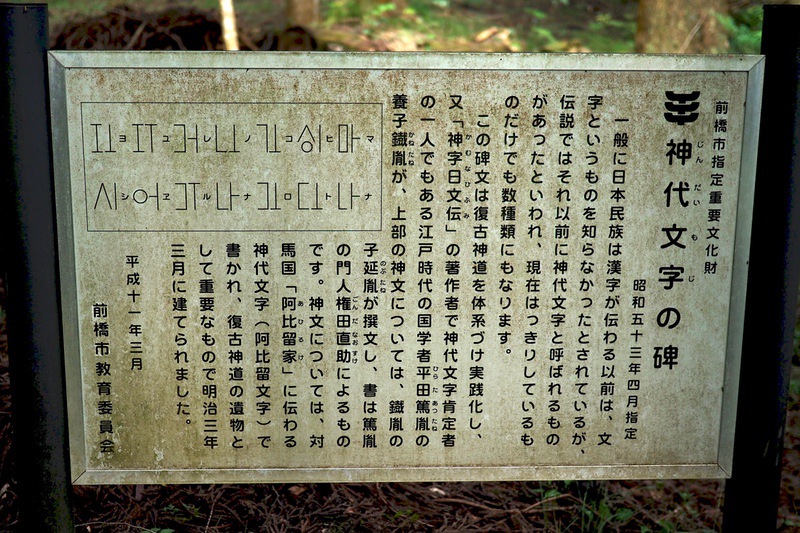 前橋市指定重要文化財
神代文字の碑
じんだいもじ
昭和五十三年四月指定
一般に日本民族は漢字が伝わる以前は、文
字というものを知らなかったとされているが、
伝説ではそれ以前に神代文字と呼ばれるもの
があったといわれ、現在はっきりしているも
のだけでも数種類にもなります。
この碑文は復古神道を体系づけ実践化し、
又「神字日文伝」の著作者で神代文字肯定者
かむなひふみ
の一人でもある江戸時代の国学者平田篤胤の
ひらたあつたね
養子鐵胤が、上部の神文については、鐵胤の
かねたね
子延胤が撰文し、書は篤胤
のぶたね
の門人権田直助によるもの
ごんだなおすけ
です。神文については、対
馬国「阿比留家」に伝わる
あひるけ
神代文字(阿比留文字)で
書かれ、復古神道の遺物と
して重要なもので明治三年
三月に建てられました。
平成十一年三月
前橋市教育委員会
マヒコノレユヨ
ナトロナルヱシ